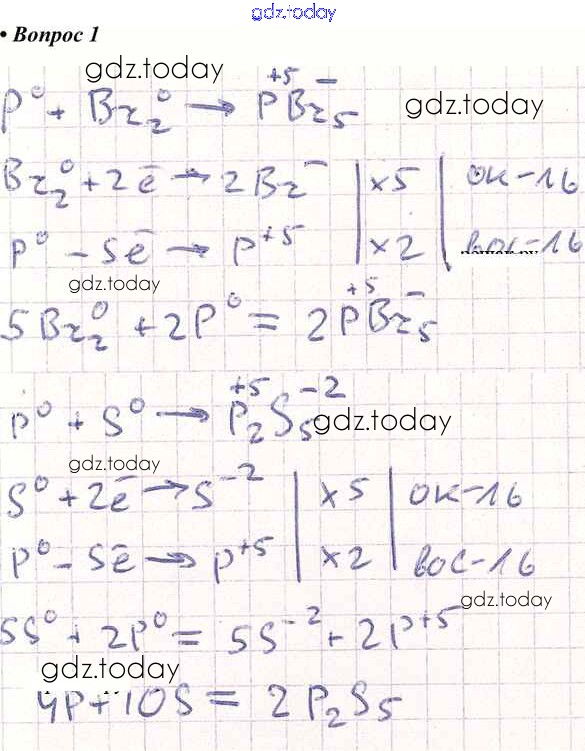 gdz.today
• Вопрос 1
gdz.today
P⁰ + Br₂⁰ → P⁺⁵Br₅⁻ gdz.today
Br₂⁰ + 2ē → 2Br⁻ | ×5 | ок-ль
P⁰ - 5ē → P⁺⁵ | ×2 | вос-ль
gdz.today
5Br₂⁰ + 2P⁰ = 2P⁺⁵Br₅⁻
P⁰ + S⁰ → P₂⁺⁵S₅⁻² gdz.today
gdz.today
S⁰ + 2ē → S⁻² | ×5 | ок-ль
P⁰ - 5ē → P⁺⁵ | ×2 | вос-ль
gdz.today
5S⁰ + 2P⁰ = 5S⁻² + 2P⁺⁵
gdz.today
4P + 10S = 2P₂S₅